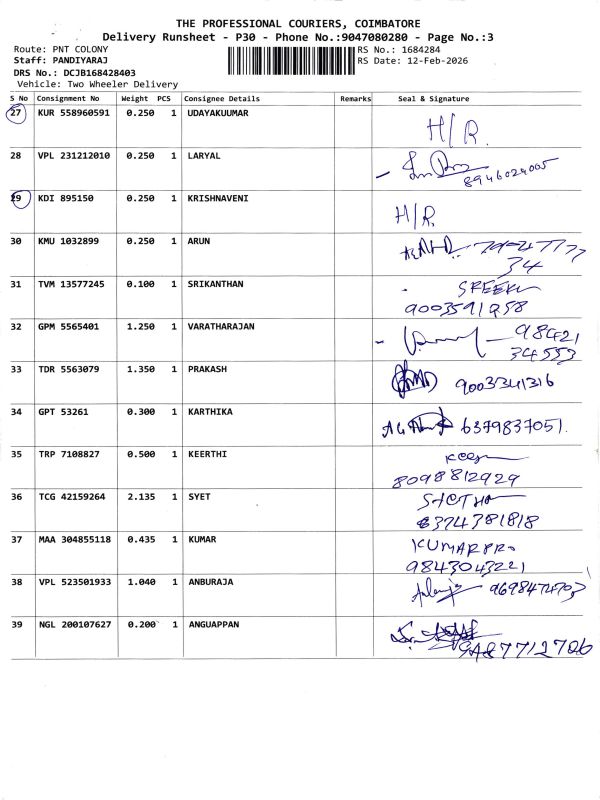 THE PROFESSIONAL COURIERS, COIMBATORE
Delivery Runsheet - P30 - Phone No.:9047080280 - Page No.:3
Route: PNT COLONY RS No.: 1684284
Staff: PANDIYARAJ RS Date: 12-Feb-2026
DRS No.: DCJB168428403
Vehicle: Two Wheeler Delivery
S No Consignment No Weight PCS Consignee Details Remarks Seal & Signature
27 KUR 558960591 0.250 1 UDAYAKUUMAR H/R.
28 VPL 231212010 0.250 1 LARYAL
8946024005
29 KDI 895150 0.250 1 KRISHNAVENI H/R.
30 KMU 1032899 0.250 1 ARUN
34
31 TVM 13577245 0.100 1 SRIKANTHAN
9003591258
32 GPM 5565401 1.250 1 VARATHARAJAN 98421
34553
33 TDR 5563079 1.350 1 PRAKASH 9003341316
34 GPT 53261 0.300 1 KARTHIKA 6379837051.
35 TRP 7108827 0.500 1 KEERTHI
8098812929
36 TCG 42159264 2.135 1 SYET
6374381818
37 MAA 304855118 0.435 1 KUMAR KUMAR
9843043221
38 VPL 523501933 1.040 1 ANBURAJA
39 NGL 200107627 0.200 1 ANGUAPPAN